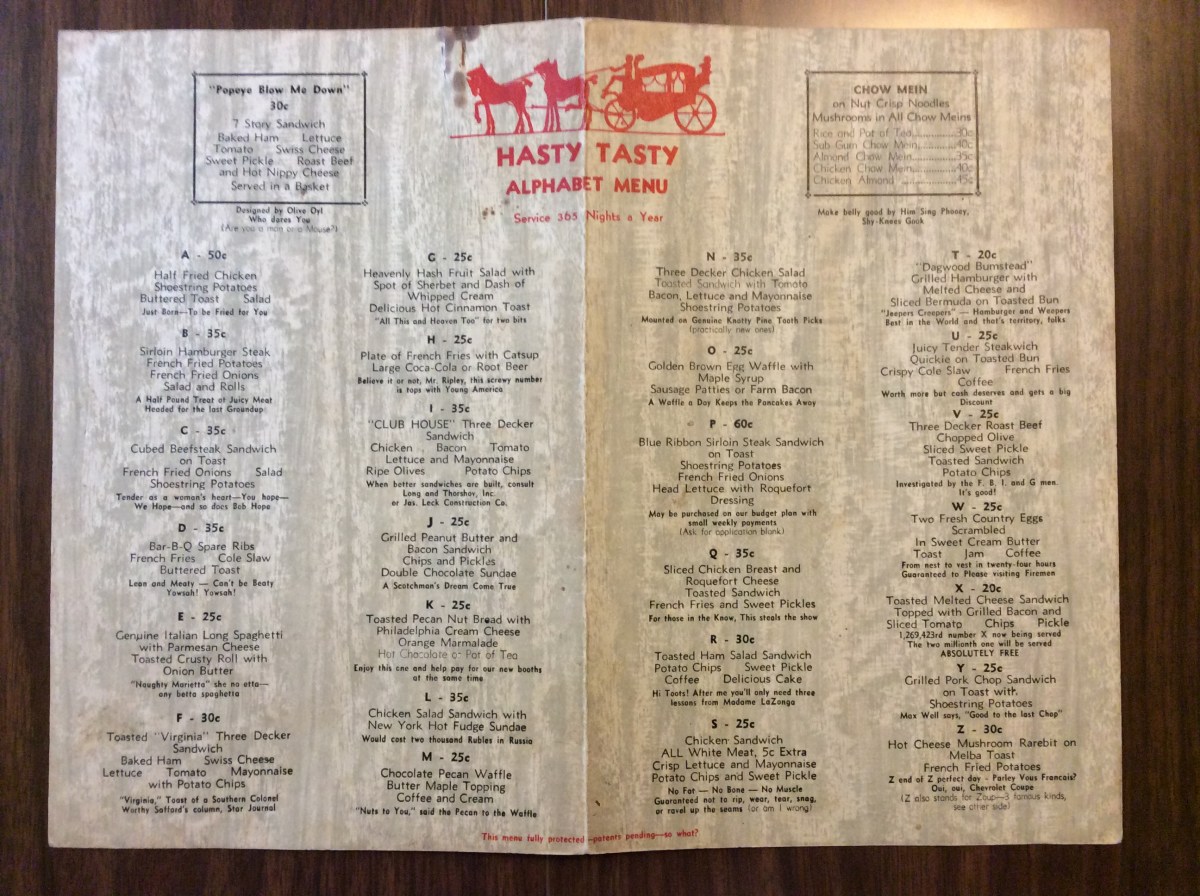 "Popeye Blow Me Down"
30c
7 Story Sandwich
Baked Ham Lettuce
Tomato Swiss Cheese
Sweet Pickle Roast Beef
and Hot Nippy Cheese
Served in a Basket
Designed by Olive Oyl
Who dares You
(Are you a man or a Mouse?)
HASTY TASTY
ALPHABET MENU
Service 365 Nights a Year
CHOW MEIN
on Nut Crisp Noodles
Mushrooms in All Chow Meins
Rice and Pot of Tea............30c
Sub Gum Chow Mein............40c
Almond Chow Mein............35c
Chicken Chow Mein............40c
Chicken Almond ............45c
Make belly good by Him Sing Phooey,
Shy-Knees Gook
A - 50c
Half Fried Chicken
Shoestring Potatoes
Buttered Toast Salad
Just Born—To be Fried for You
B - 35c
Sirloin Hamburger Steak
French Fried Potatoes
French Fried Onions
Salad and Rolls
A Half Pound Treat of Juicy Meat
Headed for the last Groundup
C - 35c
Cubed Beefsteak Sandwich
on Toast
French Fried Onions Salad
Shoestring Potatoes
Tender as a woman's heart—You hope—
We Hope—and so does Bob Hope
D - 35c
Bar-B-Q Spare Ribs
French Fries Cole Slaw
Buttered Toast
Lean and Meaty — Can't be Beaty
Yowsah! Yowsah!
E - 25c
Genuine Italian Long Spaghetti
with Parmesan Cheese
Toasted Crusty Roll with
Onion Butter
"Naughty Marietta" she no otta—
any betta spaghetta
F - 30c
Toasted "Virginia" Three Decker
Sandwich
Baked Ham Swiss Cheese
Lettuce Tomato Mayonnaise
with Potato Chips
"Virginia," Toast of a Southern Colonel
Worthy Safford's column, Star Journal
G - 25c
Heavenly Hash Fruit Salad with
Spot of Sherbet and Dash of
Whipped Cream
Delicious Hot Cinnamon Toast
"All This and Heaven Too" for two bits
H - 25c
Plate of French Fries with Catsup
Large Coca-Cola or Root Beer
Believe it or not, Mr. Ripley, this screwy number
is tops with Young America
I - 35c
"CLUB HOUSE" Three Decker
Sandwich
Chicken Bacon Tomato
Lettuce and Mayonnaise
Ripe Olives Potato Chips
When better sandwiches are built, consult
Long and Thorshov, Inc.
or Jas. Leck Construction Co.
J - 25c
Grilled Peanut Butter and
Bacon Sandwich
Chips and Pickles
Double Chocolate Sundae
A Scotchman's Dream Come True
K - 25c
Toasted Pecan Nut Bread with
Philadelphia Cream Cheese
Orange Marmalade
Hot Chocolate or Pot of Tea
Enjoy this one and help pay for our new booths
at the same time
L - 35c
Chicken Salad Sandwich with
New York Hot Fudge Sundae
Would cost two thousand Rubles in Russia
M - 25c
Chocolate Pecan Waffle
Butter Maple Topping
Coffee and Cream
"Nuts to You," said the Pecan to the Waffle
N - 35c
Three Decker Chicken Salad
Toasted Sandwich with Tomato
Bacon, Lettuce and Mayonnaise
Shoestring Potatoes
Mounted on Genuine Knotty Pine Tooth Picks
(practically new ones)
O - 25c
Golden Brown Egg Waffle with
Maple Syrup
Sausage Patties or Farm Bacon
A Waffle a Day Keeps the Pancakes Away
P - 60c
Blue Ribbon Sirloin Steak Sandwich
on Toast
Shoestring Potatoes
French Fried Onions
Head Lettuce with Roquefort
Dressing
May be purchased on our budget plan with
small weekly payments
(Ask for application blank)
Q - 35c
Sliced Chicken Breast and
Roquefort Cheese
Toasted Sandwich
French Fries and Sweet Pickles
For those in the Know, This steals the show
R - 30c
Toasted Ham Salad Sandwich
Potato Chips Sweet Pickle
Coffee Delicious Cake
Hi Toots! After me you'll only need three
lessons from Madame LaZonga
S - 25c
Chicken Sandwich
ALL White Meat, 5c Extra
Crisp Lettuce and Mayonnaise
Potato Chips and Sweet Pickle
No Fat — No Bone — No Muscle
Guaranteed not to rip, wear, tear, snag,
or ravel up the seams (or am I wrong?)
T - 20c
"Dagwood Bumstead"
Grilled Hamburger with
Melted Cheese and
Sliced Bermuda on Toasted Bun
"Jeepers Creepers" — Hamburger and Weepers
Best in the World and that's territory, folks
U - 25c
Juicy Tender Steakwich
Quickie on Toasted Bun
Crispy Cole Slaw French Fries
Coffee
Worth more but cash deserves and gets a big
Discount
V - 25c
Three Decker Roast Beef
Chopped Olive
Sliced Sweet Pickle
Toasted Sandwich
Potato Chips
Investigated by the F. B. I. and G men
It's good!
W - 25c
Two Fresh Country Eggs
Scrambled
In Sweet Cream Butter
Toast Jam Coffee
From nest to vest in twenty-four hours
Guaranteed to Please visiting Firemen
X - 20c
Toasted Melted Cheese Sandwich
Topped with Grilled Bacon and
Sliced Tomato Chips Pickle
1,269,423rd number X now being served
The two millionth one will be served
ABSOLUTELY FREE
Y - 25c
Grilled Pork Chop Sandwich
on Toast with
Shoestring Potatoes
Max Well says, "Good to the last Chop"
Z - 30c
Hot Cheese Mushroom Rarebit on
Melba Toast
French Fried Potatoes
Z end of Z perfect day - Parley Vous Francais?
Oui, oui, Chevrolet Coupe
(Z also stands for Zoup—3 famous kinds,
see other side)
This menu fully protected—patents pending—so what?